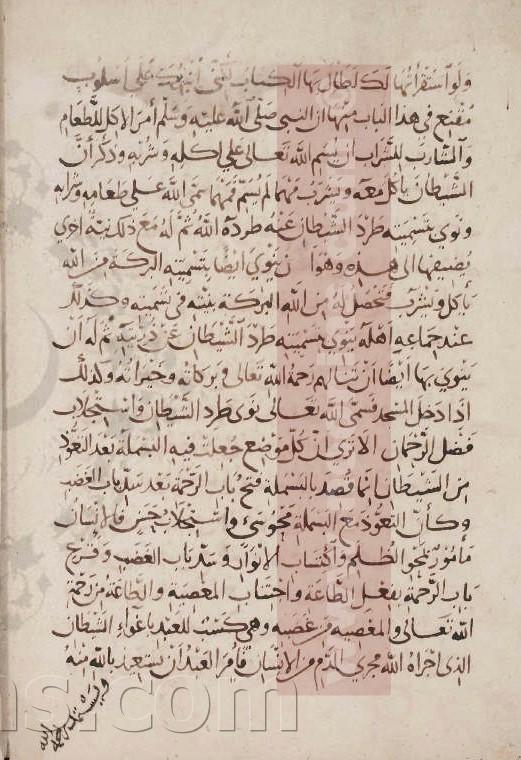 ولو استقرأتها لك لطال بها الكتاب لكنى انبهك على اسلوب
مقنع فى هذا الباب منها ان النبى صلى الله عليه وسلم أمر الاكل للطعام
والشارب للشراب ان يسم الله تعالى على اكله وشربه وذكر أن
الشيطان يأكل معه ويشرب فمهما لم يسم فمهما سمى الله على طعامه وشرابه
ونوى بتسميته طرد الشيطان عنه طرده الله ثم له مع ذلك نية اخرى
يضيفها الى هذه وهو ان ينوى ايضا بتسميته البركة من الله
يأكل ويشرب فتحصل له من الله البركة بنيته فى تسميته وكذلك
عند جماعه اهله ينوى بتسميته طرد الشيطان عن ذريته ثم له أن
ينوى بها أيضا ان تنالهم رحمة الله تعالى وبركاته وخيراته وكذلك
اذا دخل المسجد فسمى الله تعالى نوى طرد الشيطان واستجلاب
فضل الرحمان الا ترى ان كل موضع جعلت فيه البسملة بعد التعوذ
من الشيطان انما قصد بالبسملة فتح باب الرحمة بعد سد باب الغضب
وكأن التعوذ مع البسملة واستجلاب فالانسان
مأمور بمحو الظلم واكتساب الانوار وسد باب الغضب وقرع
باب الرحمة بفعل الطاعة واجتناب المعصية والطاعة من رحمة
الله تعالى والمعصية من غضبه وهى كسب للعبد باغواء الشيطان
الذى اجراه الله مجرى الدم من الانسان فأمر العبد أن يستعيذ بالله منه
ns.com